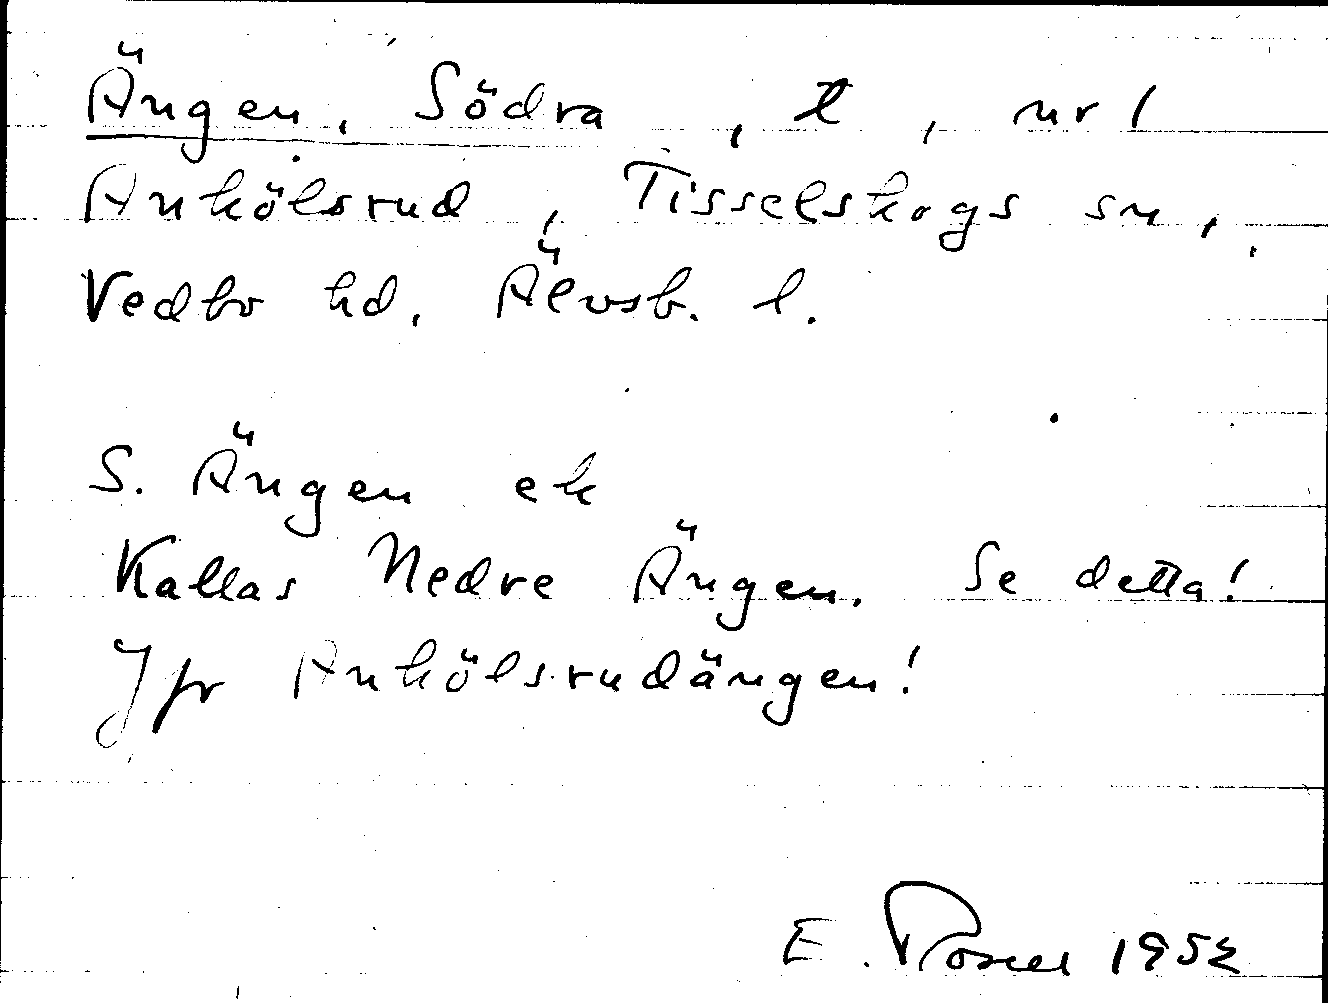 Ängen, Södra, t, nr 1
Ankölsrud, Tisselskogs sn,
Vedbo hd, Älvsb. l.
S. Ängen ek
Kallas Nedre Ängen. Se detta!
Jfr Ankölsrudängen!
E. Rosell 1952